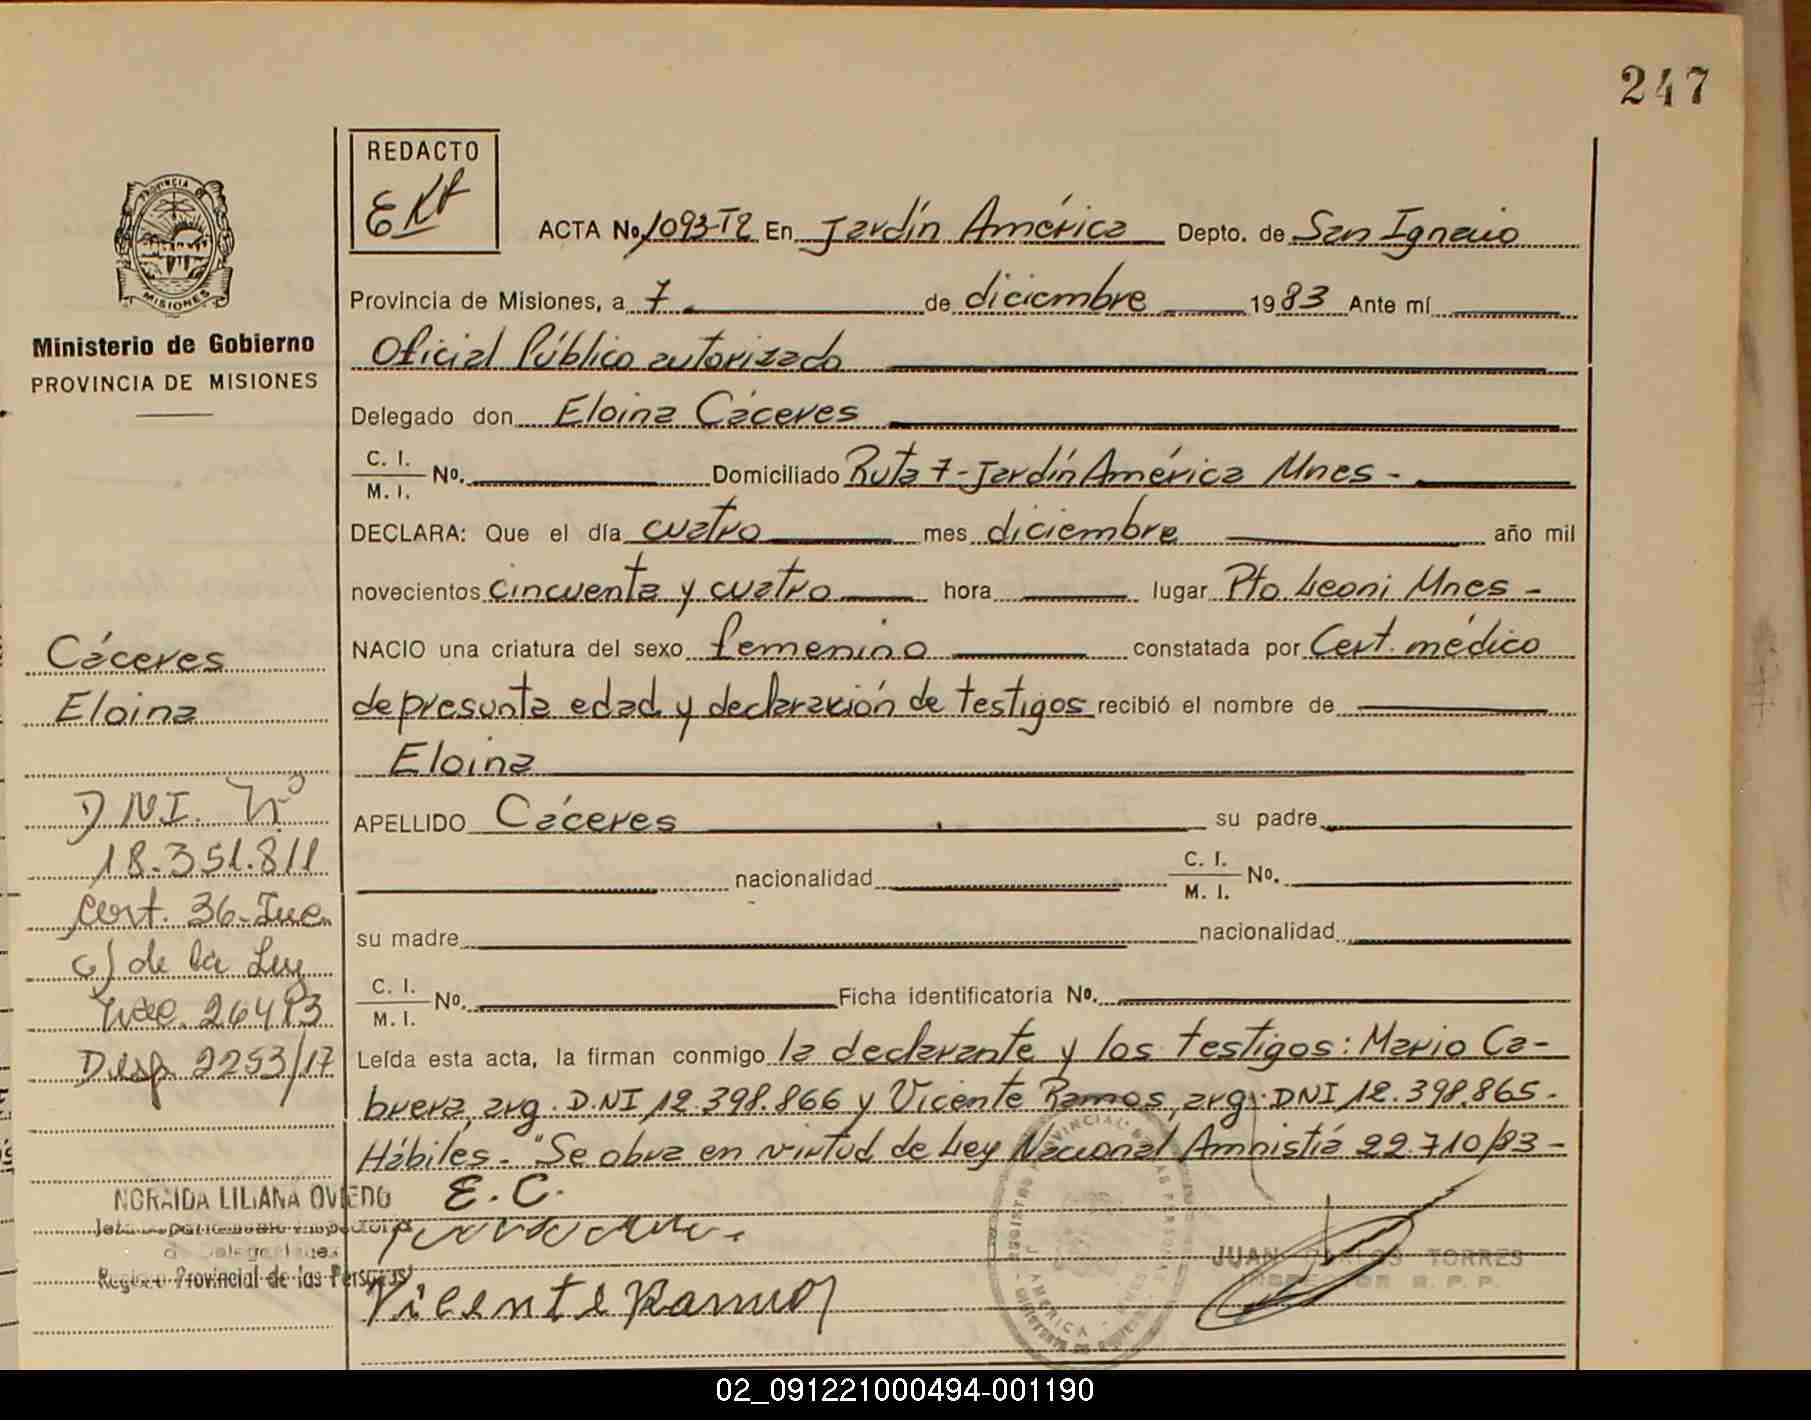 247
REDACTO
EKf
PROVINCIA DE
MISIONES
Ministerio de Gobierno
PROVINCIA DE MISIONES
ACTA No. 1093-T2 En Jardín América Depto. de San Ignacio
Provincia de Misiones, a 7 de diciembre 1983 Ante mí
Oficial Público autorizado
Delegado don Eloina Cáceres
C. I. / M. I. No. Domiciliado Ruta 7 - Jardín América Mnes -
DECLARA: Que el día cuatro mes diciembre año mil
novecientos cincuenta y cuatro hora lugar Pto Leoni Mnes -
NACIO una criatura del sexo femenino constatada por Cert. médico
de presunta edad y declaración de testigos recibió el nombre de
Eloina
APELLIDO Cáceres su padre
nacionalidad C. I. / M. I. No.
su madre nacionalidad
C. I. / M. I. No. Ficha identificatoria No.
Leída esta acta, la firman conmigo la declarante y los testigos: Mario Ca-
brera, arg. D.NI 12.398.866 y Vicente Ramos, arg. DNI 12.398.865.
Hábiles - "Se obra en virtud de Ley Nacional Amnistía 22.710/83 -
E. C.
Vicente Ramos
JUAN CARLOS TORRES
INSPECTOR R. P. P.
Cáceres
Eloina
DNI. Nº
18.351.811
cert. 36-
c/ de la Ley
26413
Desp 2253/17
NORAIDA LILIANA OVIEDO
Registro Provincial de las Personas
02_091221000494-001190